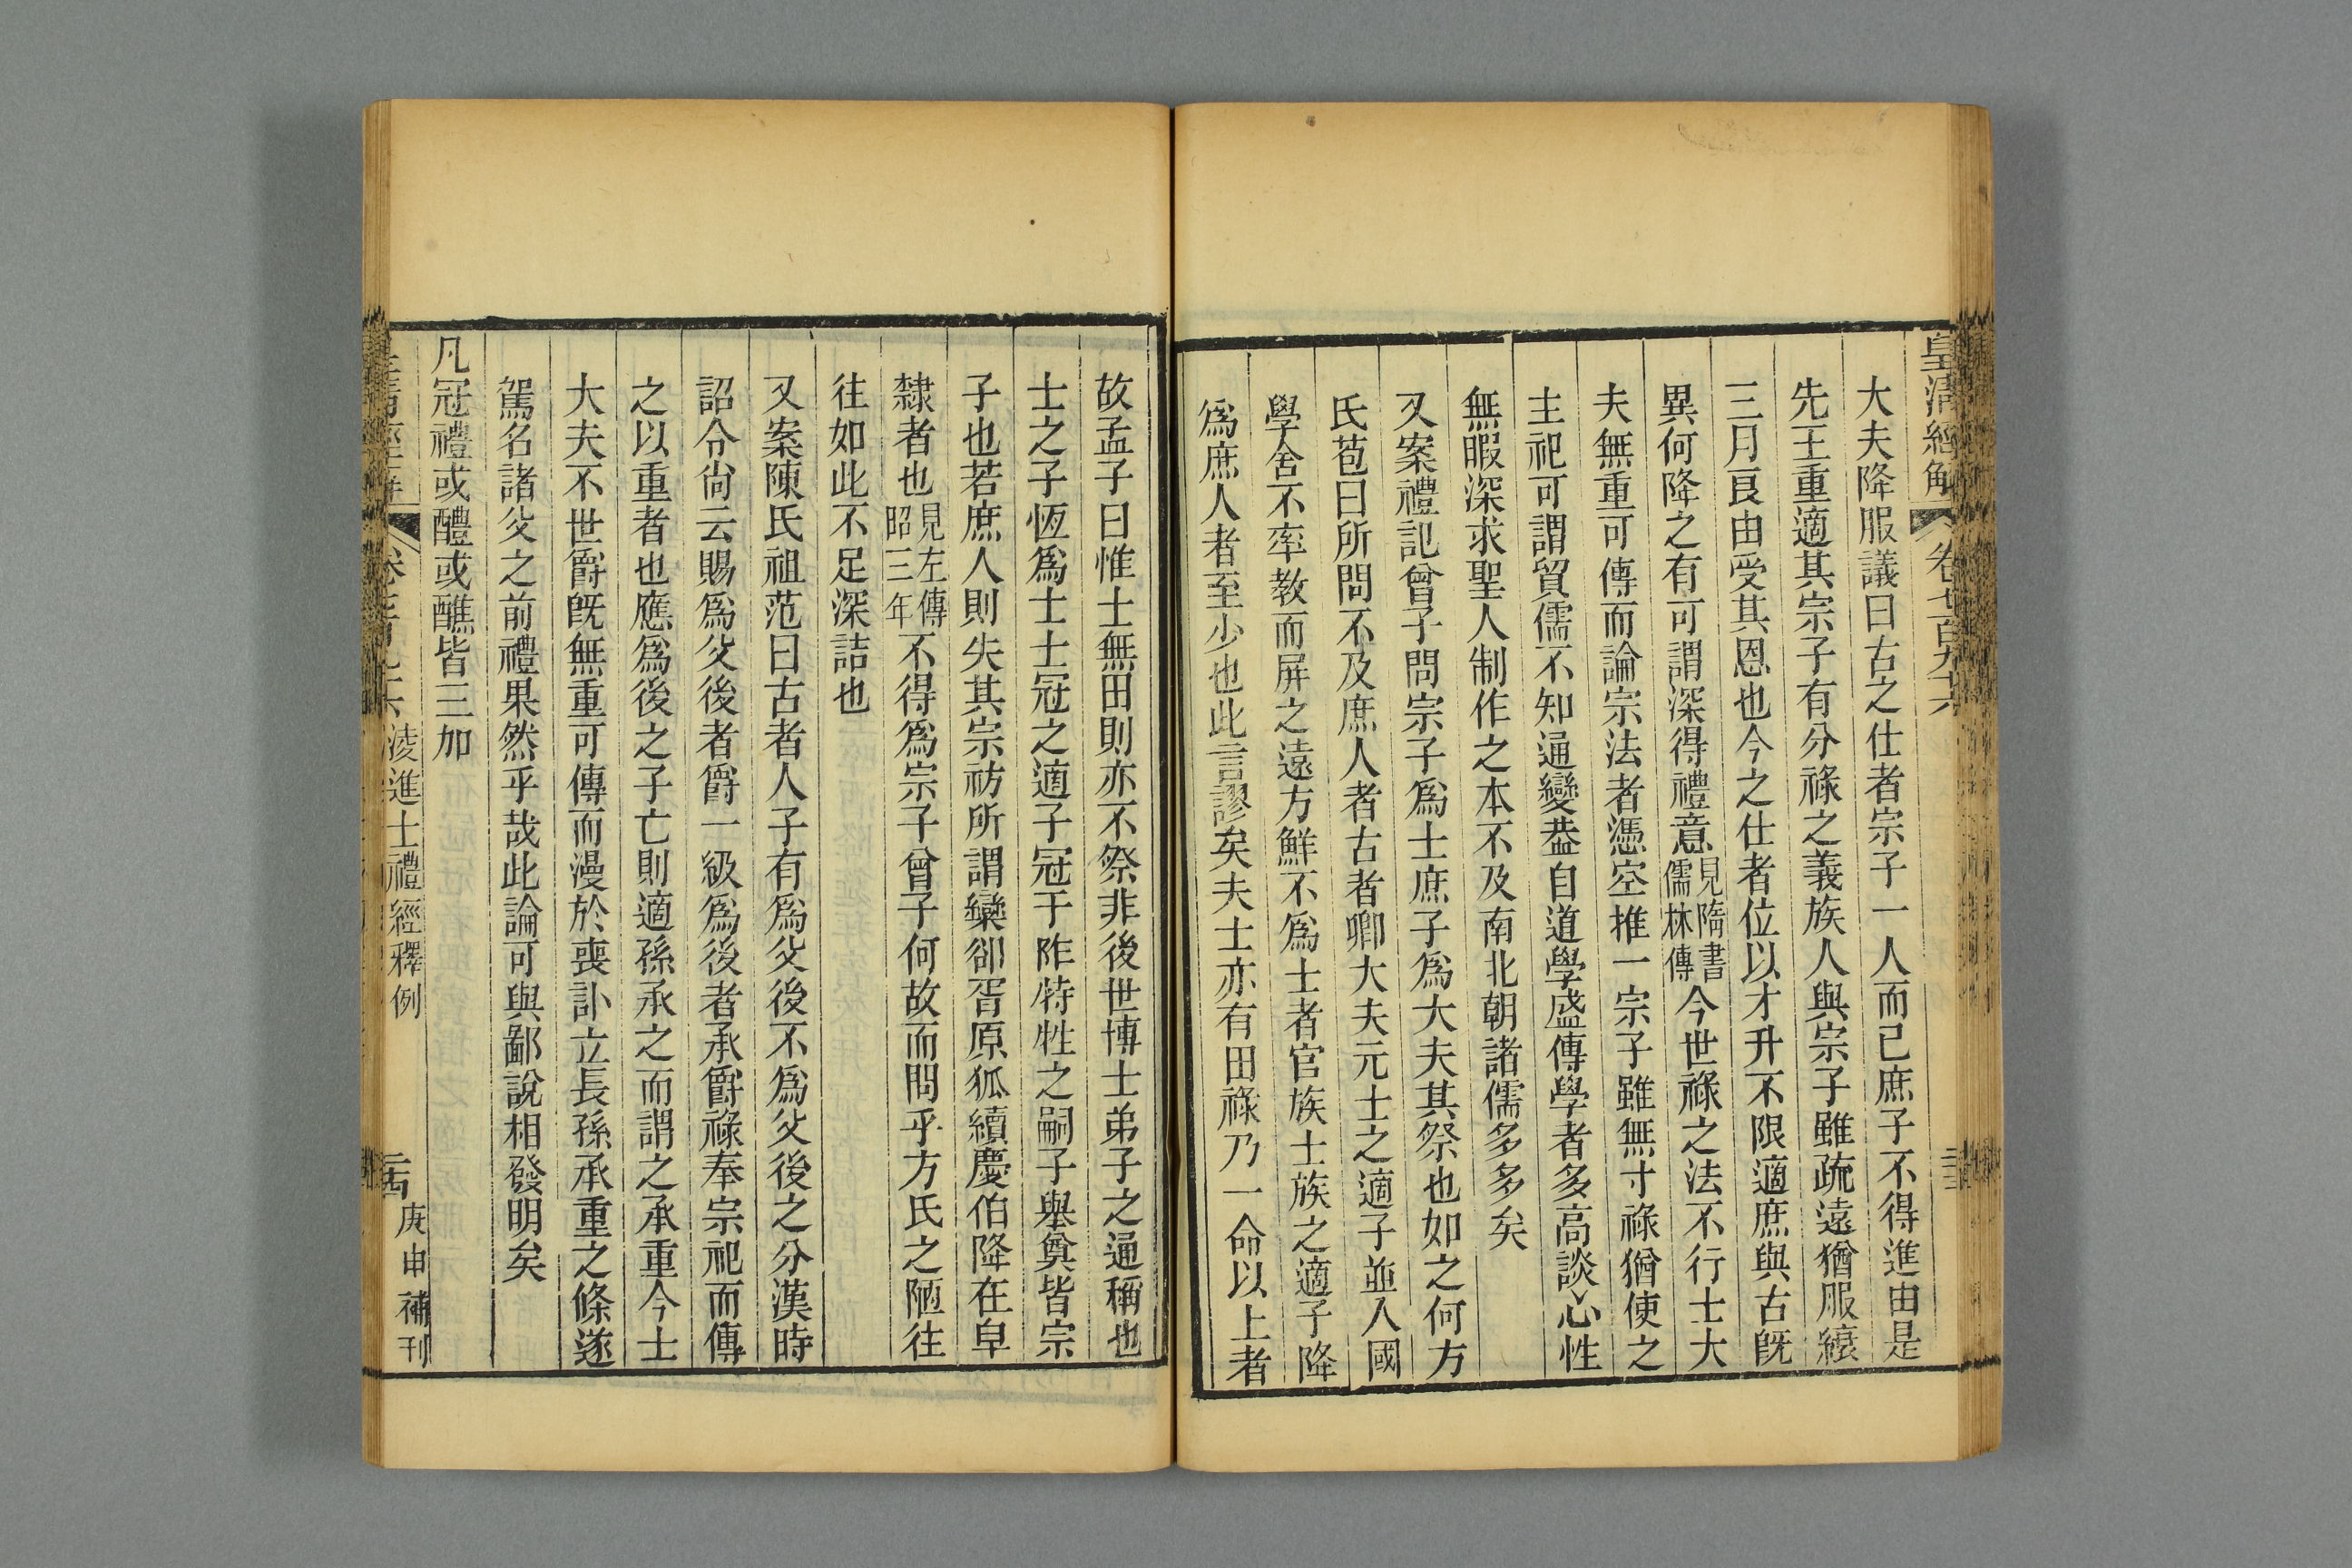 皇清經解 卷七百九十六
大夫降服議曰古之仕者宗子一人而已庶子不得進由是
先王重適其宗子有分祿之義族人與宗子雖疏遠猶服縗
三月良由受其恩也今之仕者位以才升不限適庶與古旣
異何降之有可謂深得禮意見隋書儒林傳今世祿之法不行士大
夫無重可傳而論宗法者憑空推一宗子雖無寸祿猶使之
主祀可謂貿儒不知通變葢自道學盛傳學者多高談心性
無暇深求聖人制作之本不及南北朝諸儒多多矣
又案禮記曾子問宗子爲士庶子爲大夫其祭也如之何方
氏苞曰所問不及庶人者古者卿大夫元士之適子並入國
學舍不率教而屏之遠方鮮不爲士者官族士族之適子降
爲庶人者至少也此言謬矣夫士亦有田祿乃一命以上者
故孟子曰惟士無田則亦不祭非後世博士弟子之通稱也
士之子恆爲士士冠之適子冠于阼特牲之嗣子舉奠皆宗
子也若庶人則失其宗祊所謂欒郤胥原狐續慶伯降在皁
隸者也見左傳昭三年不得爲宗子曾子何故而問乎方氏之陋往
往如此不足深詰也
又案陳氏祖范曰古者人子有爲父後不爲父後之分漢時
詔令尙云賜爲父後者爵一級爲後者承爵祿奉宗祀而傳
之以重者也應爲後之子亡則適孫承之而謂之承重今士
大夫不世爵旣無重可傳而漫於喪訃立長孫承重之條遂
駕名諸父之前禮果然乎哉此論可與鄙說相發明矣
凡冠禮或醴或醮皆三加
凌進士禮經釋例
庚申補刊